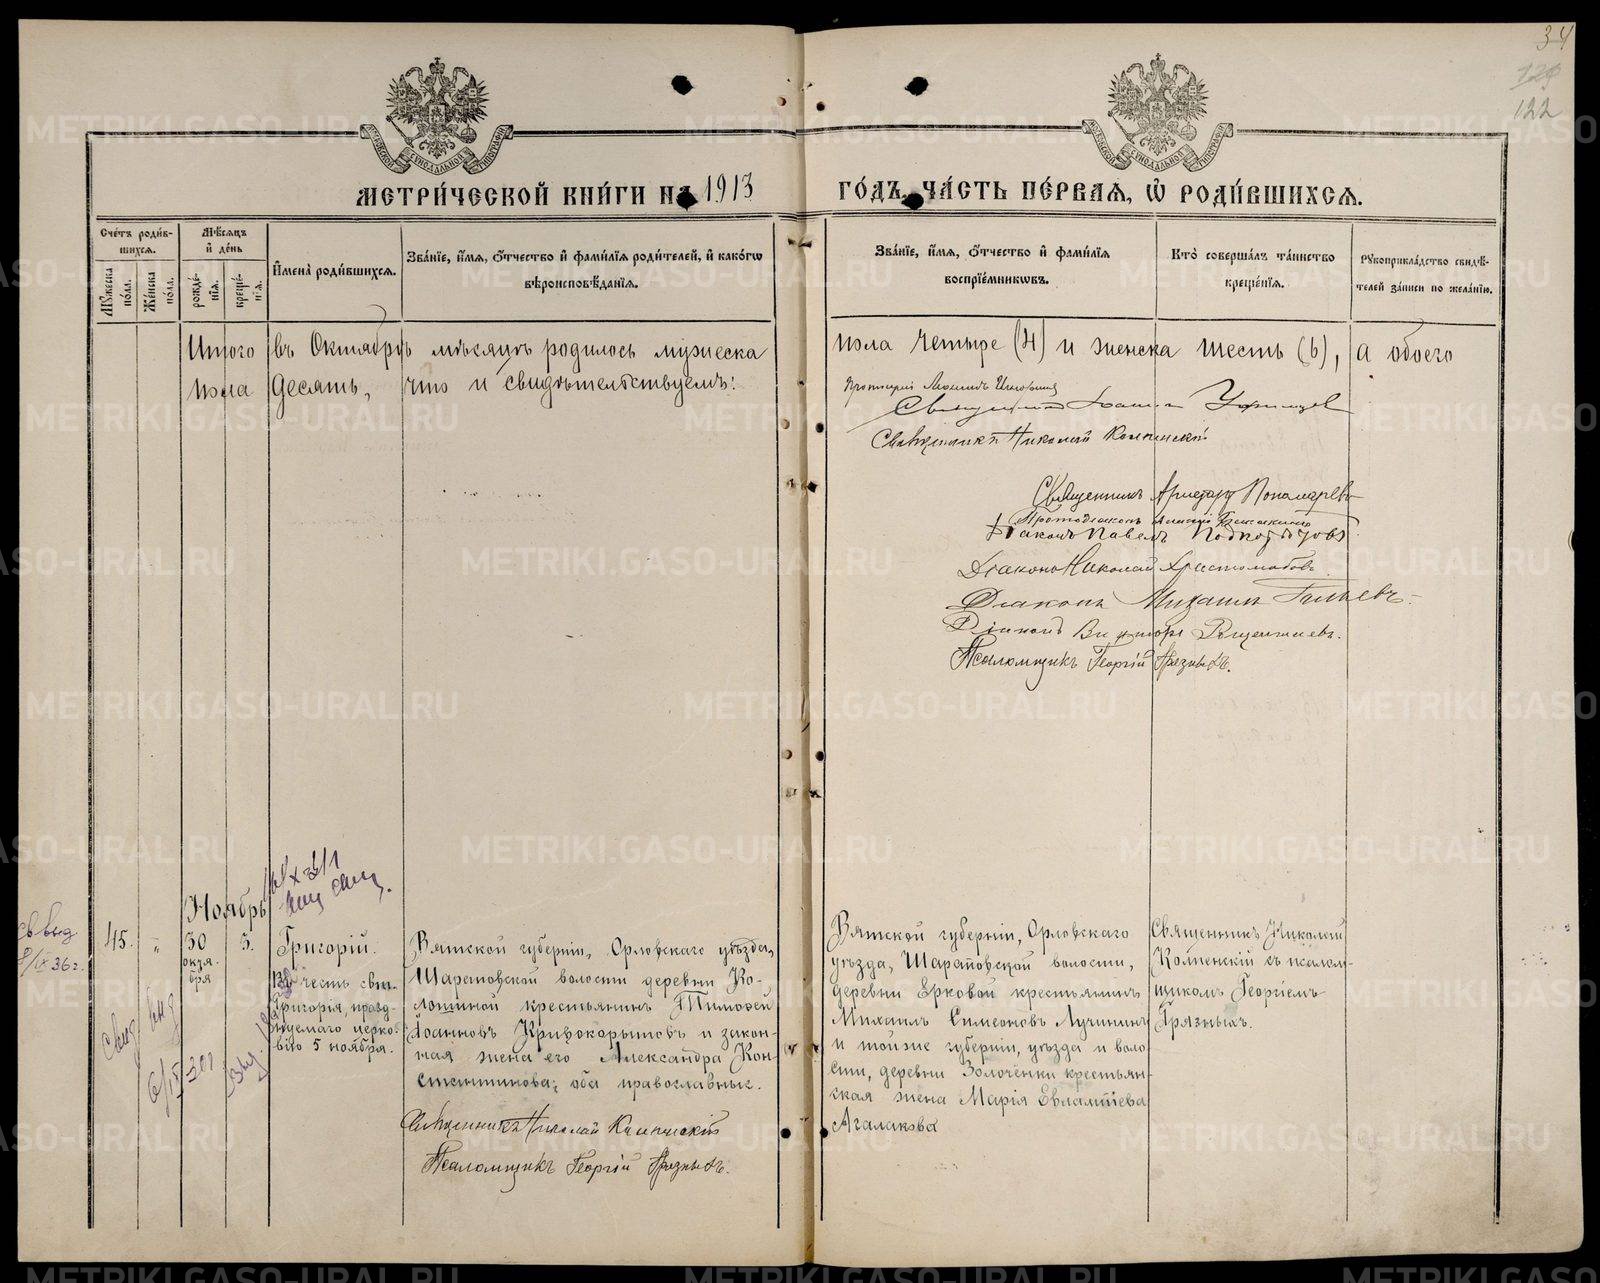 34
122
МЕТРИЧЕСКОЙ КНИГИ НА 1913
ГОДЪ, ЧАСТЬ ПЕРВАЯ, Ѿ РОДИВШИХСЯ.
МОСКОВСКОЙ СѴНОДАЛЬНОЙ ТИПОГРАФІИ
МОСКОВСКОЙ СѴНОДАЛЬНОЙ ТИПОГРАФІИ
Счетъ родив-
шихся.
Мужеска пола.
Женска пола.
Мѣсяцъ
и день
рожде-
нія.
креще-
нія.
Имена родившихся.
Званіе, имя, отчество и фамилія родителей, и какогѡ
вѣроисповѣданія.
Званіе, имя, отчество и фамилія
воспріемникѡвъ.
Кто совершалъ таинство
крещенія.
Рукоприкладство свидѣ-
телей записи по желанію.
Итого въ Октябрѣ мѣсяцѣ родилось мужеска
пола четыре (4) и женска шесть (6), а обоего
пола десять, что и свидѣтельствуемъ:
Протоіерей
Священникъ Іоаннъ Уфимцев
Священникъ Николай Колпенскій
Священникъ Пономаревъ
Протодіаконъ
Діаконъ Павелъ
Діаконъ Николай
Діаконъ Михаилъ
Діаконъ Викторъ
Псаломщикъ Георгій Грязныхъ.
Ноябрь
45.
„
30
октя-
бря
5.
Григорій.
Въ честь свят.
Григорія, празд-
нуемаго церко-
вію 5 ноября.
Вятской губерніи, Орловскаго уѣзда,
Шараповской волости деревни Ко-
лотиной крестьянинъ Тимоѳей
Іоанновъ Кривокорытовъ и закон-
ная жена его Александра Кон-
стантинова; оба православные.
Священникъ Николай Колпенскій
Псаломщикъ Георгій Грязныхъ.
Вятской губерніи, Орловскаго
уѣзда, Шараповской волости,
деревни Ерковой крестьянинъ
Михаилъ Симеоновъ Лучининъ
и тойже губерніи, уѣзда и воло-
сти, деревни Золоченки крестьян-
ская жена Марія Евлампіева
Агалакова
Священникъ Николай
Колпенскій съ псалом-
щикомъ Георгіемъ
Грязныхъ.
METRIKI.GASO-URAL.RU